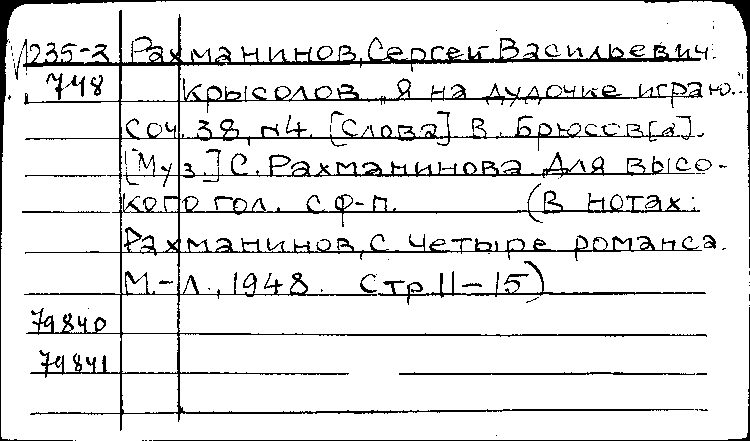 М235-2 Рахманинов, Сергей Васильевич.
748 Крысолов „Я на дудочке играю."
Соч. 38, №4. [Слова] В. Брюсов[а].
[Муз.] С. Рахманинова. Для высо-
кого гол. с ф-п. (В нотах:
Рахманинов, С. Четыре романса.
М.-Л., 1948. Стр. 11-15)
79840
79841